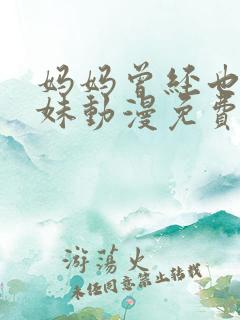 妈妈曾经也
妹動漫免費
游荡火
未经同意禁止转载